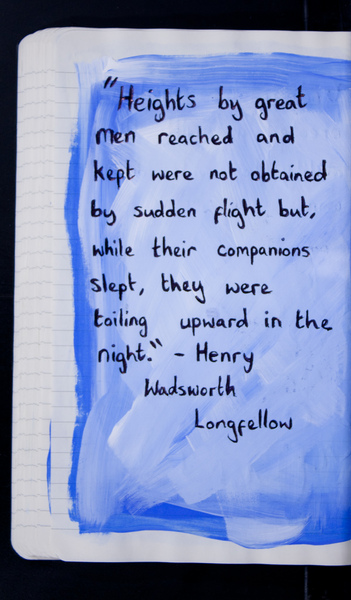 "Heights by great
men reached and
kept were not obtained
by sudden flight but,
while their companions
slept, they were
toiling upward in the
night." - Henry
Wadsworth
Longfellow